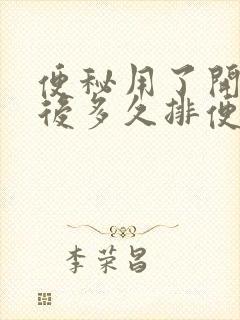 便秘用了開
後多久排便
李荣昌